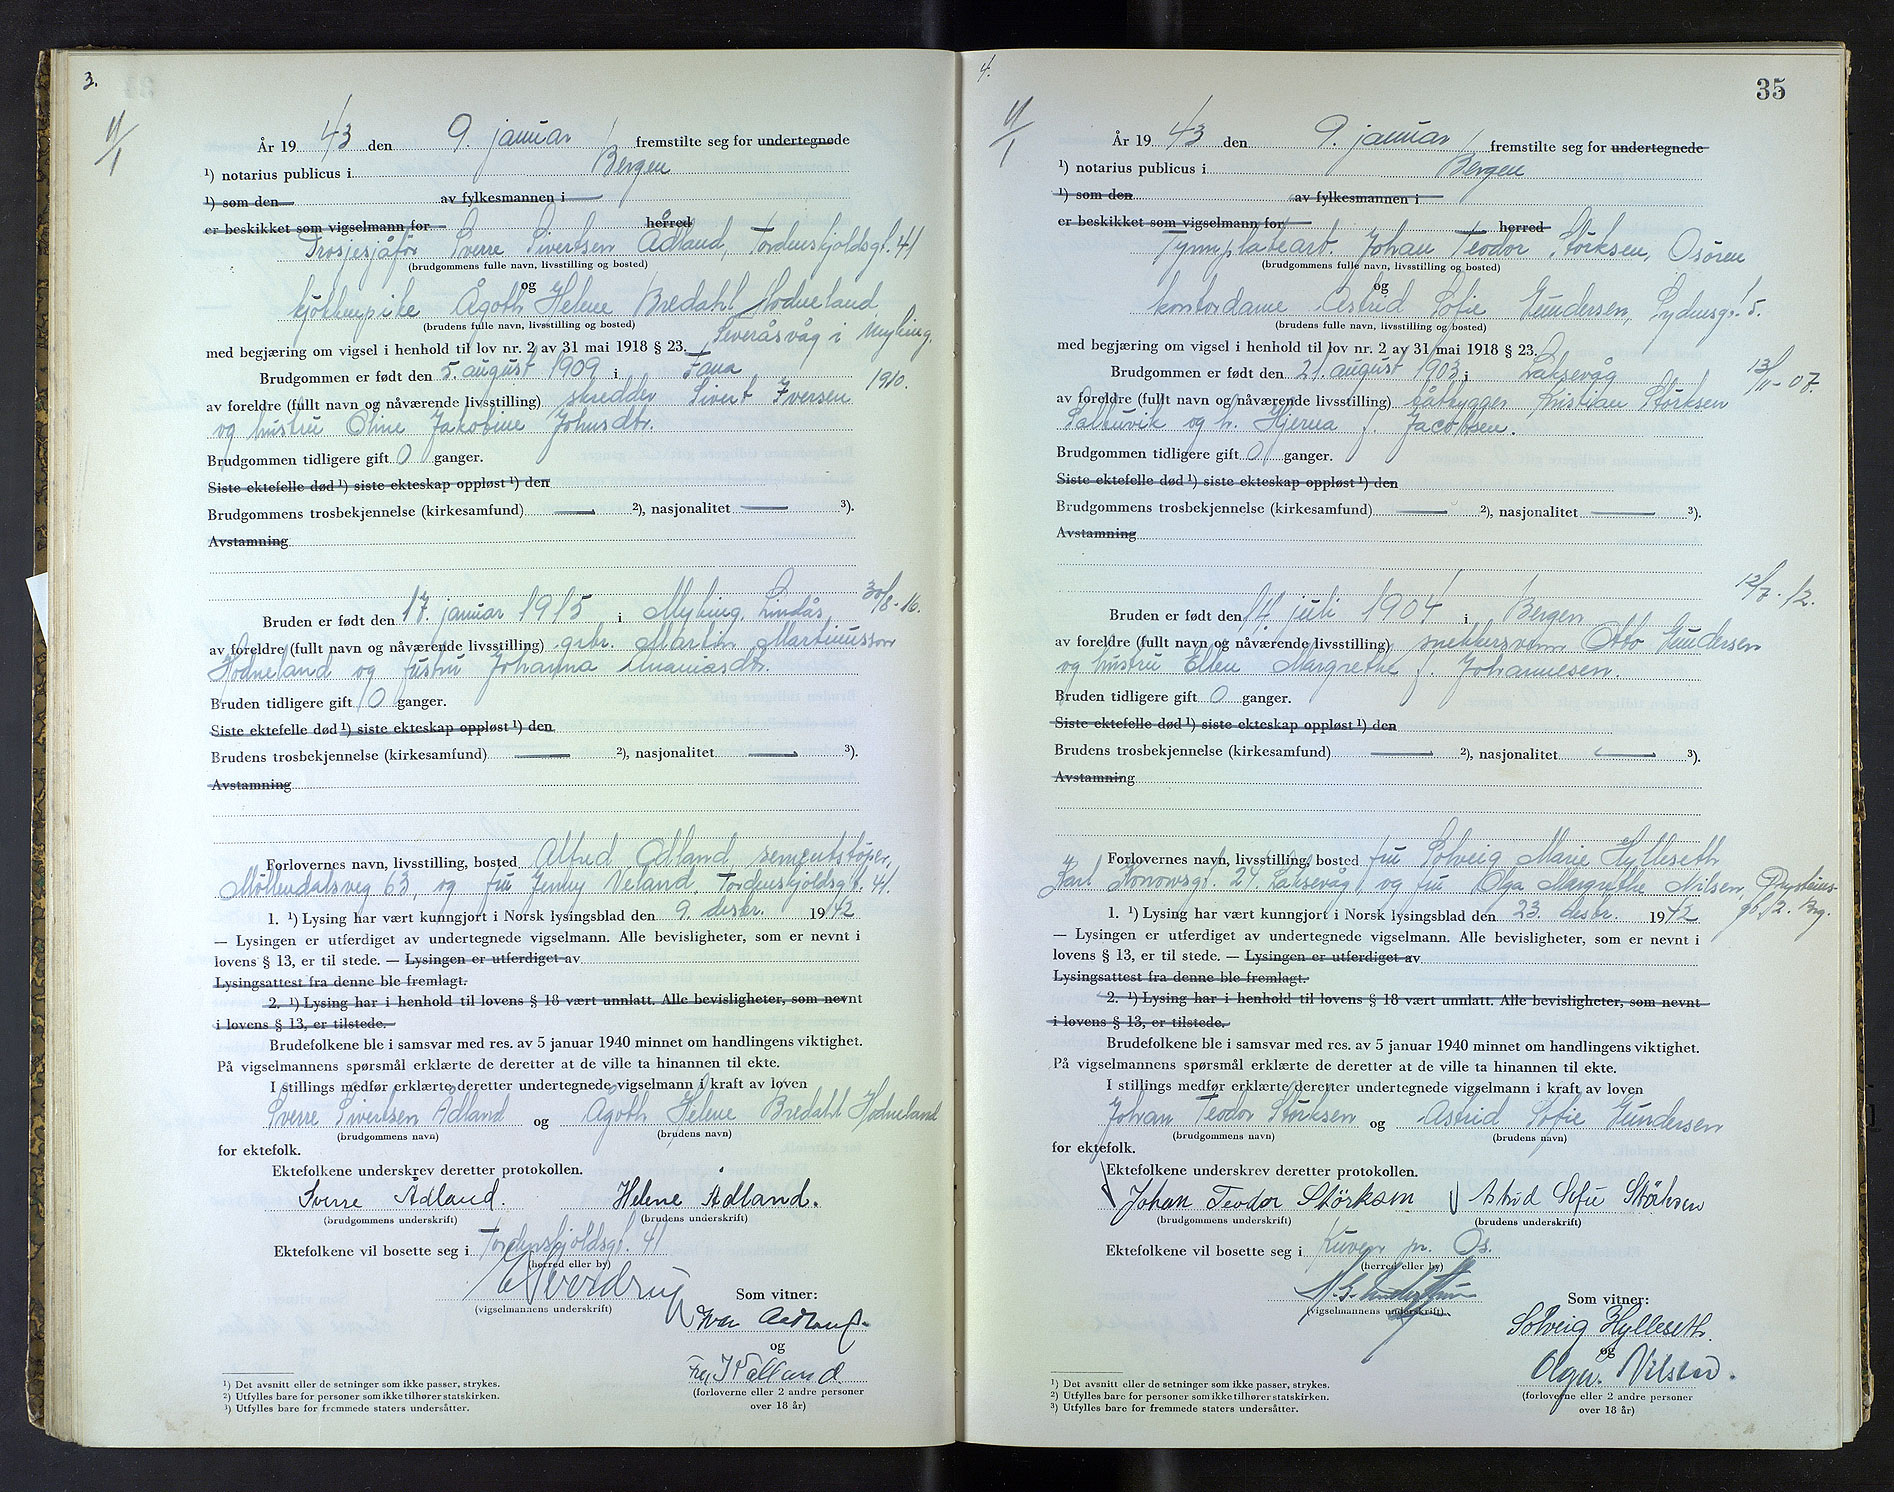 3.
11/1
År 1943 den 9. januar fremstilte seg for undertegnede
¹) notarius publicus i Bergen
¹) som den av fylkesmannen i
er beskikket som vigselmann for herred
Drosjesjåfør Sverre Sivertsen Ådland, Tordenskjoldsgt. 41
(brudgommens fulle navn, livsstilling og bosted)
og
kjøkkenpike Ågoth Helene Bredahl Hodneland,
(brudens fulle navn, livsstilling og bosted)
Severåsvåg i Myking.
med begjæring om vigsel i henhold til lov nr. 2 av 31 mai 1918 § 23.
Brudgommen er født den 5. august 1909 i Fana 1910.
av foreldre (fullt navn og nåværende livsstilling) skredder Sivert Iversen
og hustru Oline Jakobine Johnsdtr.
Brudgommen tidligere gift 0 ganger.
Siste ektefelle død ¹) siste ekteskap oppløst ¹) den
Brudgommens trosbekjennelse (kirkesamfund) — ²), nasjonalitet — ³).
Avstamning
30/8-16.
Bruden er født den 17. januar 1915 i Myking, Lindås,
av foreldre (fullt navn og nåværende livsstilling) grbr. Martin Martinussen
Hodneland og hustru Johanna Ananiasdtr.
Bruden tidligere gift 0 ganger.
Siste ektefelle død ¹) siste ekteskap oppløst ¹) den
Brudens trosbekjennelse (kirkesamfund) — ²), nasjonalitet — ³).
Avstamning
Forlovernes navn, livsstilling, bosted Alfred Ådland sementstøper,
Møllendalsveg 63, og fru Jenny Veland, Tordenskjoldsgt. 41.
1. ¹) Lysing har vært kunngjort i Norsk lysingsblad den 9. desbr. 1942
— Lysingen er utferdiget av undertegnede vigselmann. Alle bevisligheter, som er nevnt i
lovens § 13, er til stede. — Lysingen er utferdiget av
Lysingsattest fra denne ble fremlagt.
2. ¹) Lysing har i henhold til lovens § 18 vært unnlatt. Alle bevisligheter, som nevnt
i lovens § 13, er tilstede.
Brudefolkene ble i samsvar med res. av 5 januar 1940 minnet om handlingens viktighet.
På vigselmannens spørsmål erklærte de deretter at de ville ta hinannen til ekte.
I stillings medfør erklærte deretter undertegnede vigselmann i kraft av loven
Sverre Sivertsen Ådland og Ågoth Helene Bredahl Hodneland
(brudgommens navn) (brudens navn)
for ektefolk.
Ektefolkene underskrev deretter protokollen.
Sverre Ådland. Helene Ådland.
(brudgommens underskrift) (brudens underskrift)
Ektefolkene vil bosette seg i Tordenskjoldsgt. 41
(herred eller by)
(vigselmannens underskrift)
Som vitner:
og
(forloverne eller 2 andre personer
over 18 år)
¹) Det avsnitt eller de setninger som ikke passer, strykes.
²) Utfylles bare for personer som ikke tilhører statskirken.
³) Utfylles bare for fremmede staters undersåtter.
4.
35
11/1
År 1943 den 9. januar fremstilte seg for undertegnede
¹) notarius publicus i Bergen
¹) som den av fylkesmannen i
er beskikket som vigselmann for herred
Tynnplatearb. Johan Teodor Størksen, Osøren
(brudgommens fulle navn, livsstilling og bosted)
og
kontordame Astrid Sofie Gundersen, Sydnesgt. 5.
(brudens fulle navn, livsstilling og bosted)
med begjæring om vigsel i henhold til lov nr. 2 av 31 mai 1918 § 23.
Brudgommen er født den 21. august 1903 i Laksevåg 13/11-07.
av foreldre (fullt navn og nåværende livsstilling) båtbygger Kristian Størksen
Salbuvik og h. Hjerna f. Jacobsen.
Brudgommen tidligere gift 0 ganger.
Siste ektefelle død ¹) siste ekteskap oppløst ¹) den
Brudgommens trosbekjennelse (kirkesamfund) — ²), nasjonalitet — ³).
Avstamning
12/7.12.
Bruden er født den 14. juli 1904 i Bergen
av foreldre (fullt navn og nåværende livsstilling) snekkersvenn Otto Gundersen
og hustru Ellen Margrethe f. Johannesen.
Bruden tidligere gift 0 ganger.
Siste ektefelle død ¹) siste ekteskap oppløst ¹) den
Brudens trosbekjennelse (kirkesamfund) — ²), nasjonalitet — ³).
Avstamning
Forlovernes navn, livsstilling, bosted fru Solveig Marie Hylleseth
Karl Konowsgt. 24, Laksevåg, og fru Olga Margrethe Nilsen, Øysteins-
gt. 2. Brg.
1. ¹) Lysing har vært kunngjort i Norsk lysingsblad den 23. desbr. 1942
— Lysingen er utferdiget av undertegnede vigselmann. Alle bevisligheter, som er nevnt i
lovens § 13, er til stede. — Lysingen er utferdiget av
Lysingsattest fra denne ble fremlagt.
2. ¹) Lysing har i henhold til lovens § 18 vært unnlatt. Alle bevisligheter, som nevnt
i lovens § 13, er tilstede.
Brudefolkene ble i samsvar med res. av 5 januar 1940 minnet om handlingens viktighet.
På vigselmannens spørsmål erklærte de deretter at de ville ta hinannen til ekte.
I stillings medfør erklærte deretter undertegnede vigselmann i kraft av loven
Johan Teodor Størksen og Astrid Sofie Gundersen
(brudgommens navn) (brudens navn)
for ektefolk.
Ektefolkene underskrev deretter protokollen.
Johan Teodor Størksen Astrid Sofie Størksen
(brudgommens underskrift) (brudens underskrift)
Ektefolkene vil bosette seg i Kuven pr. Os.
(herred eller by)
(vigselmannens underskrift)
Som vitner:
Solveig Hylleseth.
og
Olga Nilsen.
(forloverne eller 2 andre personer
over 18 år)
¹) Det avsnitt eller de setninger som ikke passer, strykes.
²) Utfylles bare for personer som ikke tilhører statskirken.
³) Utfylles bare for fremmede staters undersåtter.